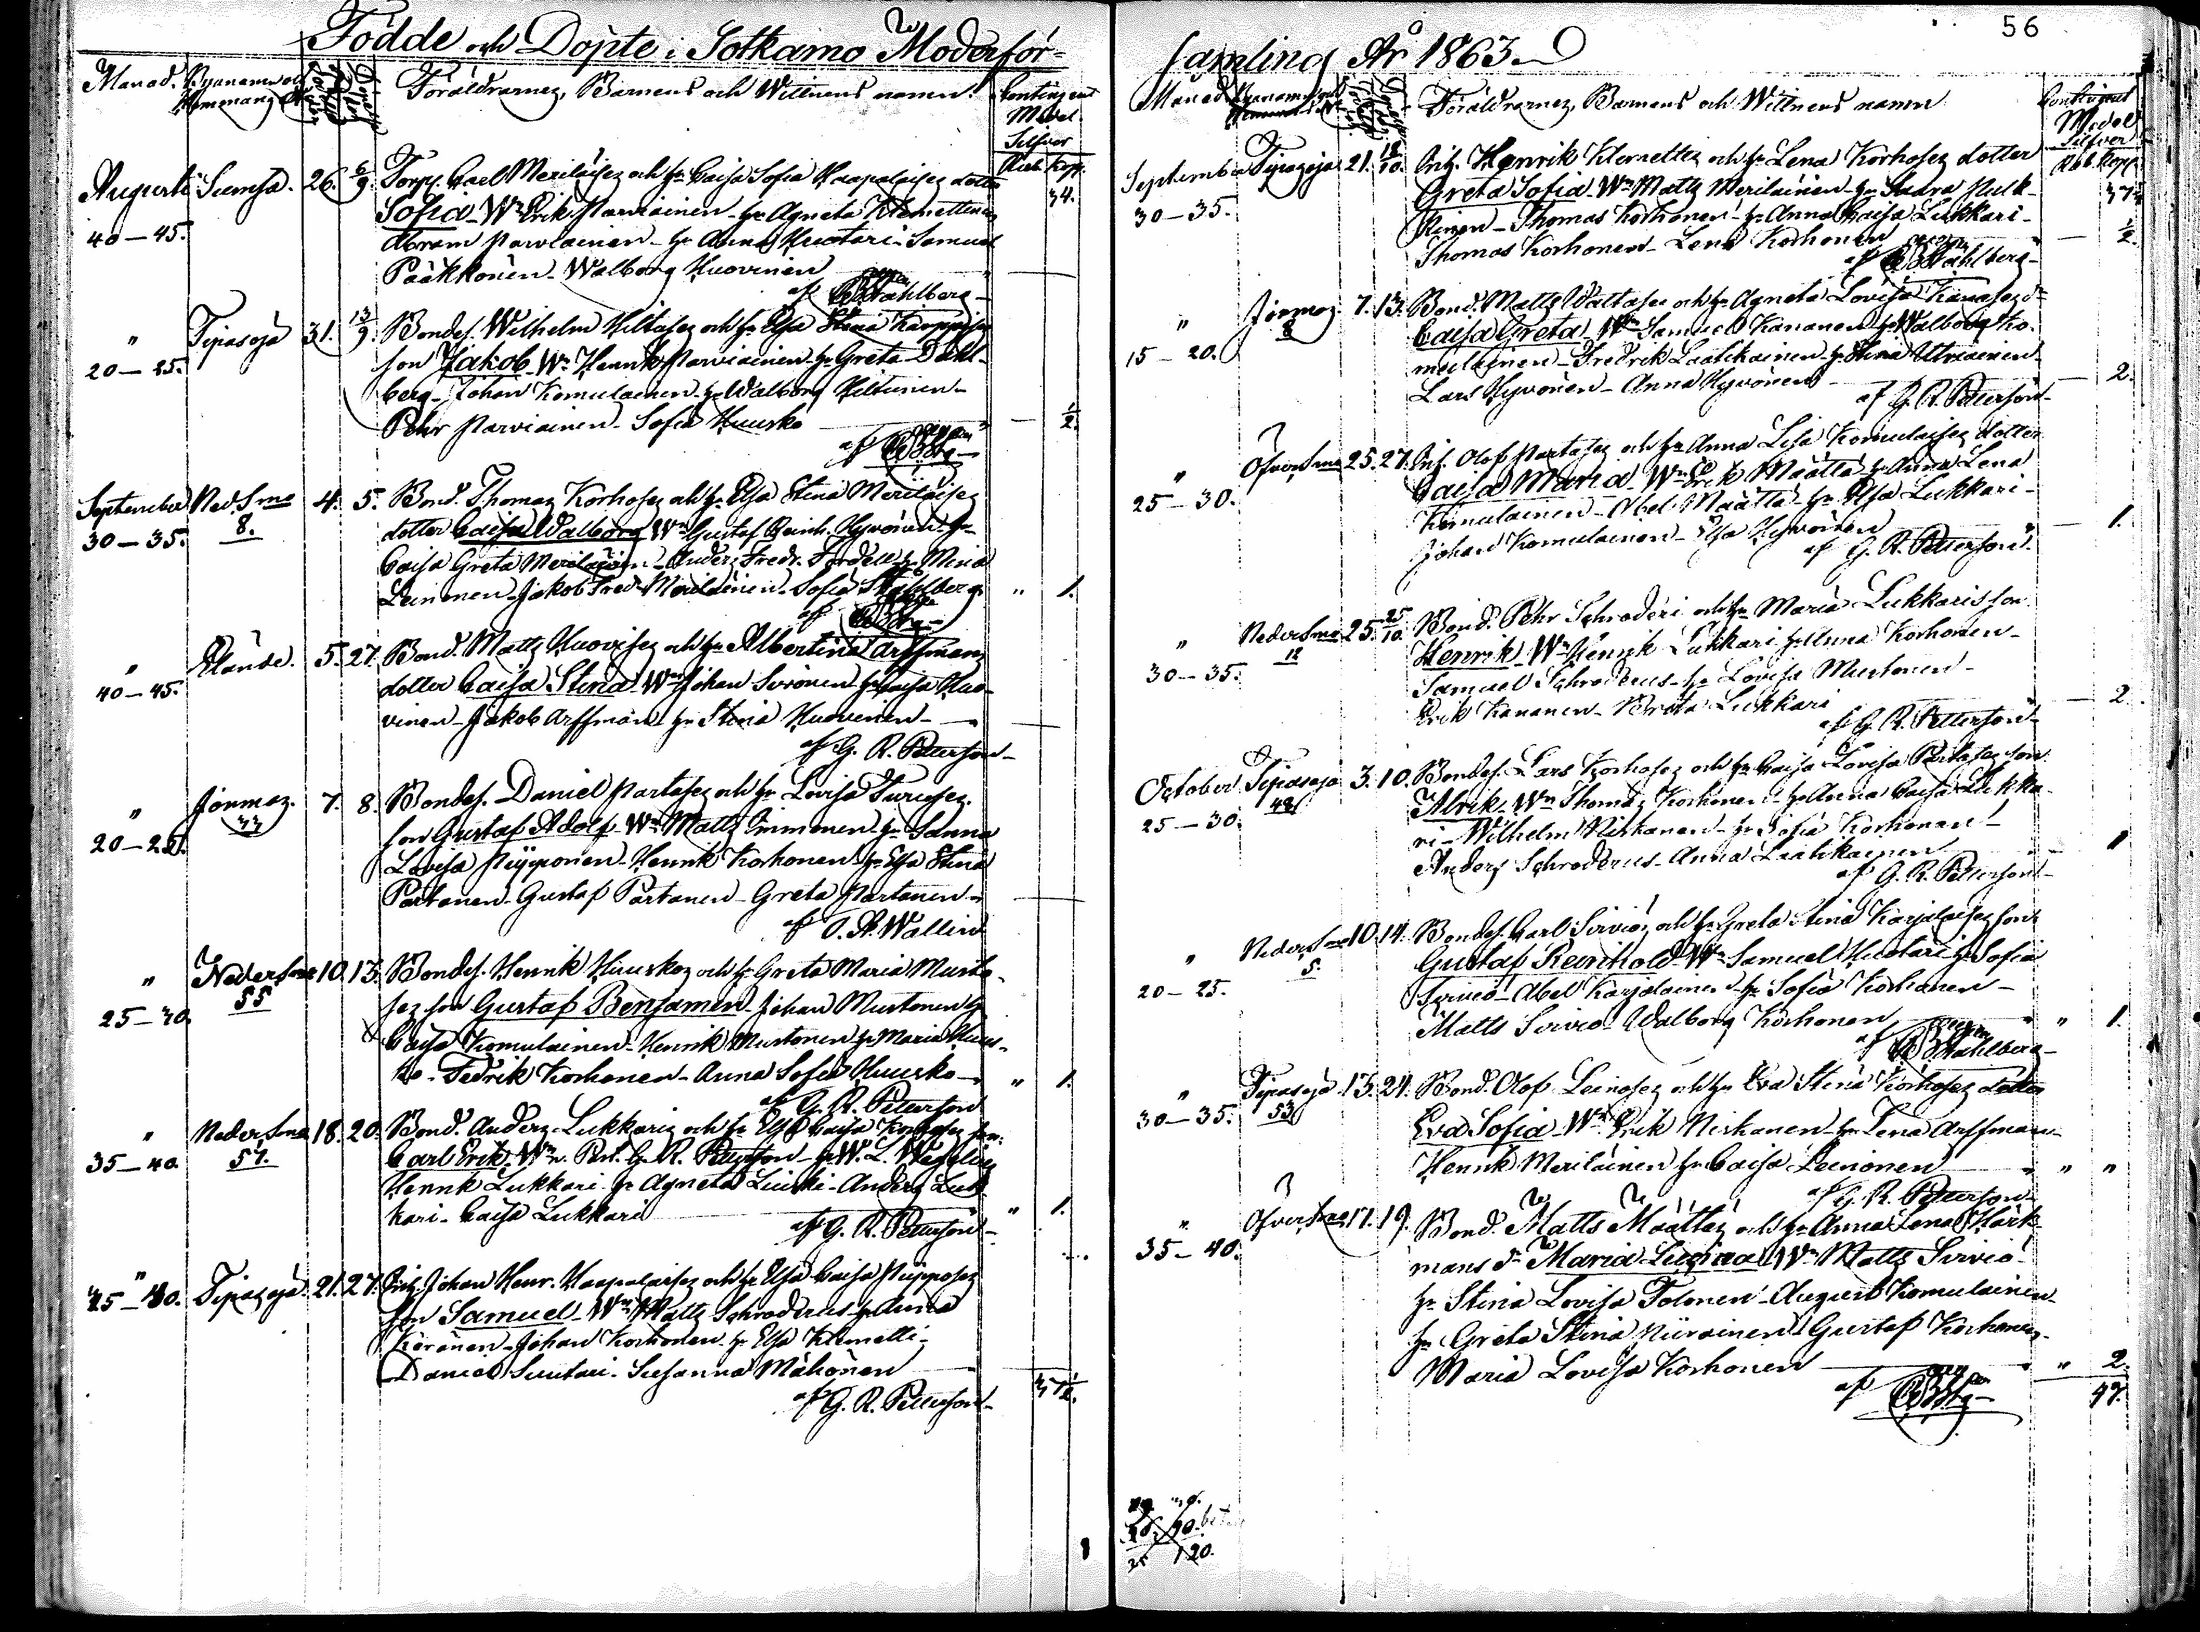 Födde och Döpte i Sotkamo Moderför-
Månad. Bynamn och
Hemmans No
Föräldrarnes, Barnens och Wittnens namn.
Contingent
Medel
Silfver
Rub. Kop.
34.
Augusti Sumsa. 26. 6/9. Torp. Carl Meriläises och h. Caisa Sofia Haapalaises dotter
40-45.
Sofia. Wn Erik Parviainen - h. Agneta Klemettinen
Abram Parviainen - h. Anna Huotari - Samuel
Pääkkönen - Walborg Huovinen
af Stahlberg
" Tipasoja 31. 13/9. Bondes. Wilhelm Hiltuses och h. Elsa Stina Karppises
20-25.
son Jakob. Wn Henrik Parviainen - h. Greta Dahl-
berg - Johan Komulainen - h. Walborg Hiltunen -
Pehr Parviainen - Sofia Huusko - 1/2.
September Ned.Smo 4. 5. Bond. Thomas Korhoses och h. Elsa Stina Meriläises
30-35. 8.
dotter Caisa Walborg Wn Gustaf Reinh. Hyvönen - h.
Caisa Greta Meriläinen - Anders Fredr. Fordell h. Mina
Leinonen - Jakob Fred. Meriläinen - Sofia Stahlberg " 1.
" 5. 27. Bond. Matts Huovises och h. Albertina Arffmans
40-45.
dotter Caisa Stina Wn Johan Sirönen - h. Caisa Huo-
vinen - Jakob Arffman - h. Stina Huovinen -
af G. R. Petterson
" Jormas. 7. 8. Bondes. Daniel Partases och h. Lovisa Turuses
20-25. 33
son Gustaf Adolf - Wn Matts Immonen - h. Sanna
Lovisa Piipponen - Henrik Korhonen - h. Elsa Stina
Partanen - Gustaf Partanen - Greta Partanen -
af O. A. Wallin
" NederSmo 10. 13. Bondes. Henrik Huuskos och h. Greta Maria Musto-
25-30. 55
ses son Gustaf Benjamin - Johan Mustonen h.
Caisa Komulainen - Henrik Mustonen h. Maria Huus-
ko - Fedrik Korhonen - Anna Sofia Huusko - " 1.
af G. R. Petterson
" NederSmo 18. 20. Bond. Anders Lukkaris och h. Elsa Caisa Korhoses son.
35-40. 57.
Carl Erik. Wn G. R. Petterson - h. W. L.
Henrik Lukkari - h. Agneta - Anders Luk-
kari - Caisa Lukkari " 1.
af G. R. Petterson
" Tipasoja 21. 27. Inh. Johan Henr. Haapalaises och h. Elsa Caisa Piipposes
son Samuel - Wn Matts Schroderus - h. Anna
Keränen - Johan Korhonen - h. Elsa Klemetti -
Daniel Suutari - Susanna Mähönen
af G. R. Petterson
56
samling År 1863.
Månad
Föräldrarnes, Barnens och Wittnens namn
Contingent
Medel
Silfver
Rub. Kop.
September Tipasoja 21. 18/10. Inh. Henrik Klemettis och h. Lena Korhoses dotter
30-35.
Greta Sofia - Wn Matts Meriläinen - h. Saara Pulk-
kinen - Thomas Korhonen - h. Anna Caisa Lukkari -
Thomas Korhonen - Lena Korhonen - 1/2.
af Stahlberg
" Jormas 7. 13. Bond. Matts Wattases och h. Agneta Lovisa Kananses dr
15-20. 8
Caisa Greta. Wn Samuel Kananen h. Walborg Ko-
mulainen - Fredrik Laatikainen - h. Stina Utriainen
Lars Hyvönen - Anna Hyvönen - 2.
af G. R. Petterson
" ÖfverSmo 25. 27. Inh. Olof Partases och h. Anna Lisa Komulaises dotter
25-30.
Caisa Maria - Wn Erik Määttä - h. Anna Lena
Komulainen - Abel Määttä - h. Elsa Lukkari -
Johan Komulainen - Elsa Hyvönen - 1.
af G. R. Petterson
" NederSmo 25. 25/10. Bond. Pehr Schroderi och h. Maria Lukkaris son
30-35. 12
Henrik - Wn Henrik Lukkari - h. Anna Korhonen -
Samuel Schroderus - h. Lovisa Mustonen -
Erik Kananen - Greta Lukkari - 2.
af G. R. Petterson
October Tipasoja 3. 10. Bondes. Lars Korhoses och h. Caisa Lovisa Partases son
25-30. 48
Alrik. Wn Thomas Korhonen - h. Anna Caisa Lukka-
ri - Wilhelm Niskanen - h. Sofia Korhonen -
Anders Schroderus - Anna Laatikainen
af G. R. Petterson
" NederSmo 10. 14. Bondes. Carl Sirviös och h. Greta Stina Karjalaises son
20-25. 5.
Gustaf Reinhold - Wn Samuel Huotari h. Sofia
Sirviö - Abel Karjalainen - h. Sofia Korhonen -
Matts Sirviö - Walborg Korhonen " 1.
af Stahlberg
" Tipasoja 13. 24. Bond. Olof Leinoses och h. Eva Stina Korhoses dotter
30-35. 53
Eva Sofia - Wn Erik Niskanen - h. Lena Arffman -
Henrik Meriläinen h. Caisa Leinonen " "
af G. R. Petterson
" ÖfverSmo 17. 19. Bond. Matts Määttäs och h. Anna Lena Hark-
35-40.
mans dr Maria Lusina Wn Matts Sirviö
h. Stina Lovisa Tolonen - August Komulainen -
h. Greta Stina Niiranen - Gustaf Korhonen -
Maria Lovisa Korhonen " 2.
47.